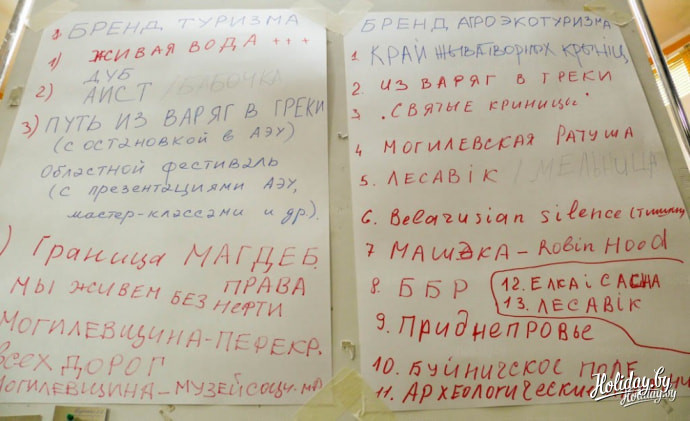 БРЕНД ТУРИЗМА
1) ЖИВАЯ ВОДА +++
2) ДУБ
АИСТ / БАБОЧКА
3) ПУТЬ ИЗ ВАРЯГ В ГРЕКИ
(С ОСТАНОВКОЙ В АЭУ)
ОБЛАСТНОЙ ФЕСТИВАЛЬ
(С ПРЕЗЕНТАЦИЯМИ АЭУ,
мастер-классами и др).
) Граница МАГДЕБ.
ПРАВА
МЫ ЖИВЕМ БЕЗ НЕФТИ
МОГИЛЕВЩИНА-ПЕРЕКР.
ВСЕХ ДОРОГ
МОГИЛЕВЩИНА-МУЗЕЙ
БРЕНД АГРОЭКОТУРИЗМА
1 КРАЙ ЖЫВАТВОРНЫХ КРЫНІЦ
2 ИЗ ВАРЯГ В ГРЕКИ
3 "СВЯТЫЕ КРИНИЦЫ"
4 МОГИЛЕВСКАЯ РАТУША
5. ЛЕСАВІК / МЕЛЬНИЦА
6. Belarusian silence (тишина)
7 МАШЭКА - Robin Hood
8. ББР
12. ЕЛКА І САСНА
13. ЛЕСАВІК
9. ПРИДНЕПРОВЬЕ
10. БУЙНИЧСКОЕ ПОЛЕ
11. АРХЕОЛОГИЧЕСКИЕ
Holiday.by
Holiday.by